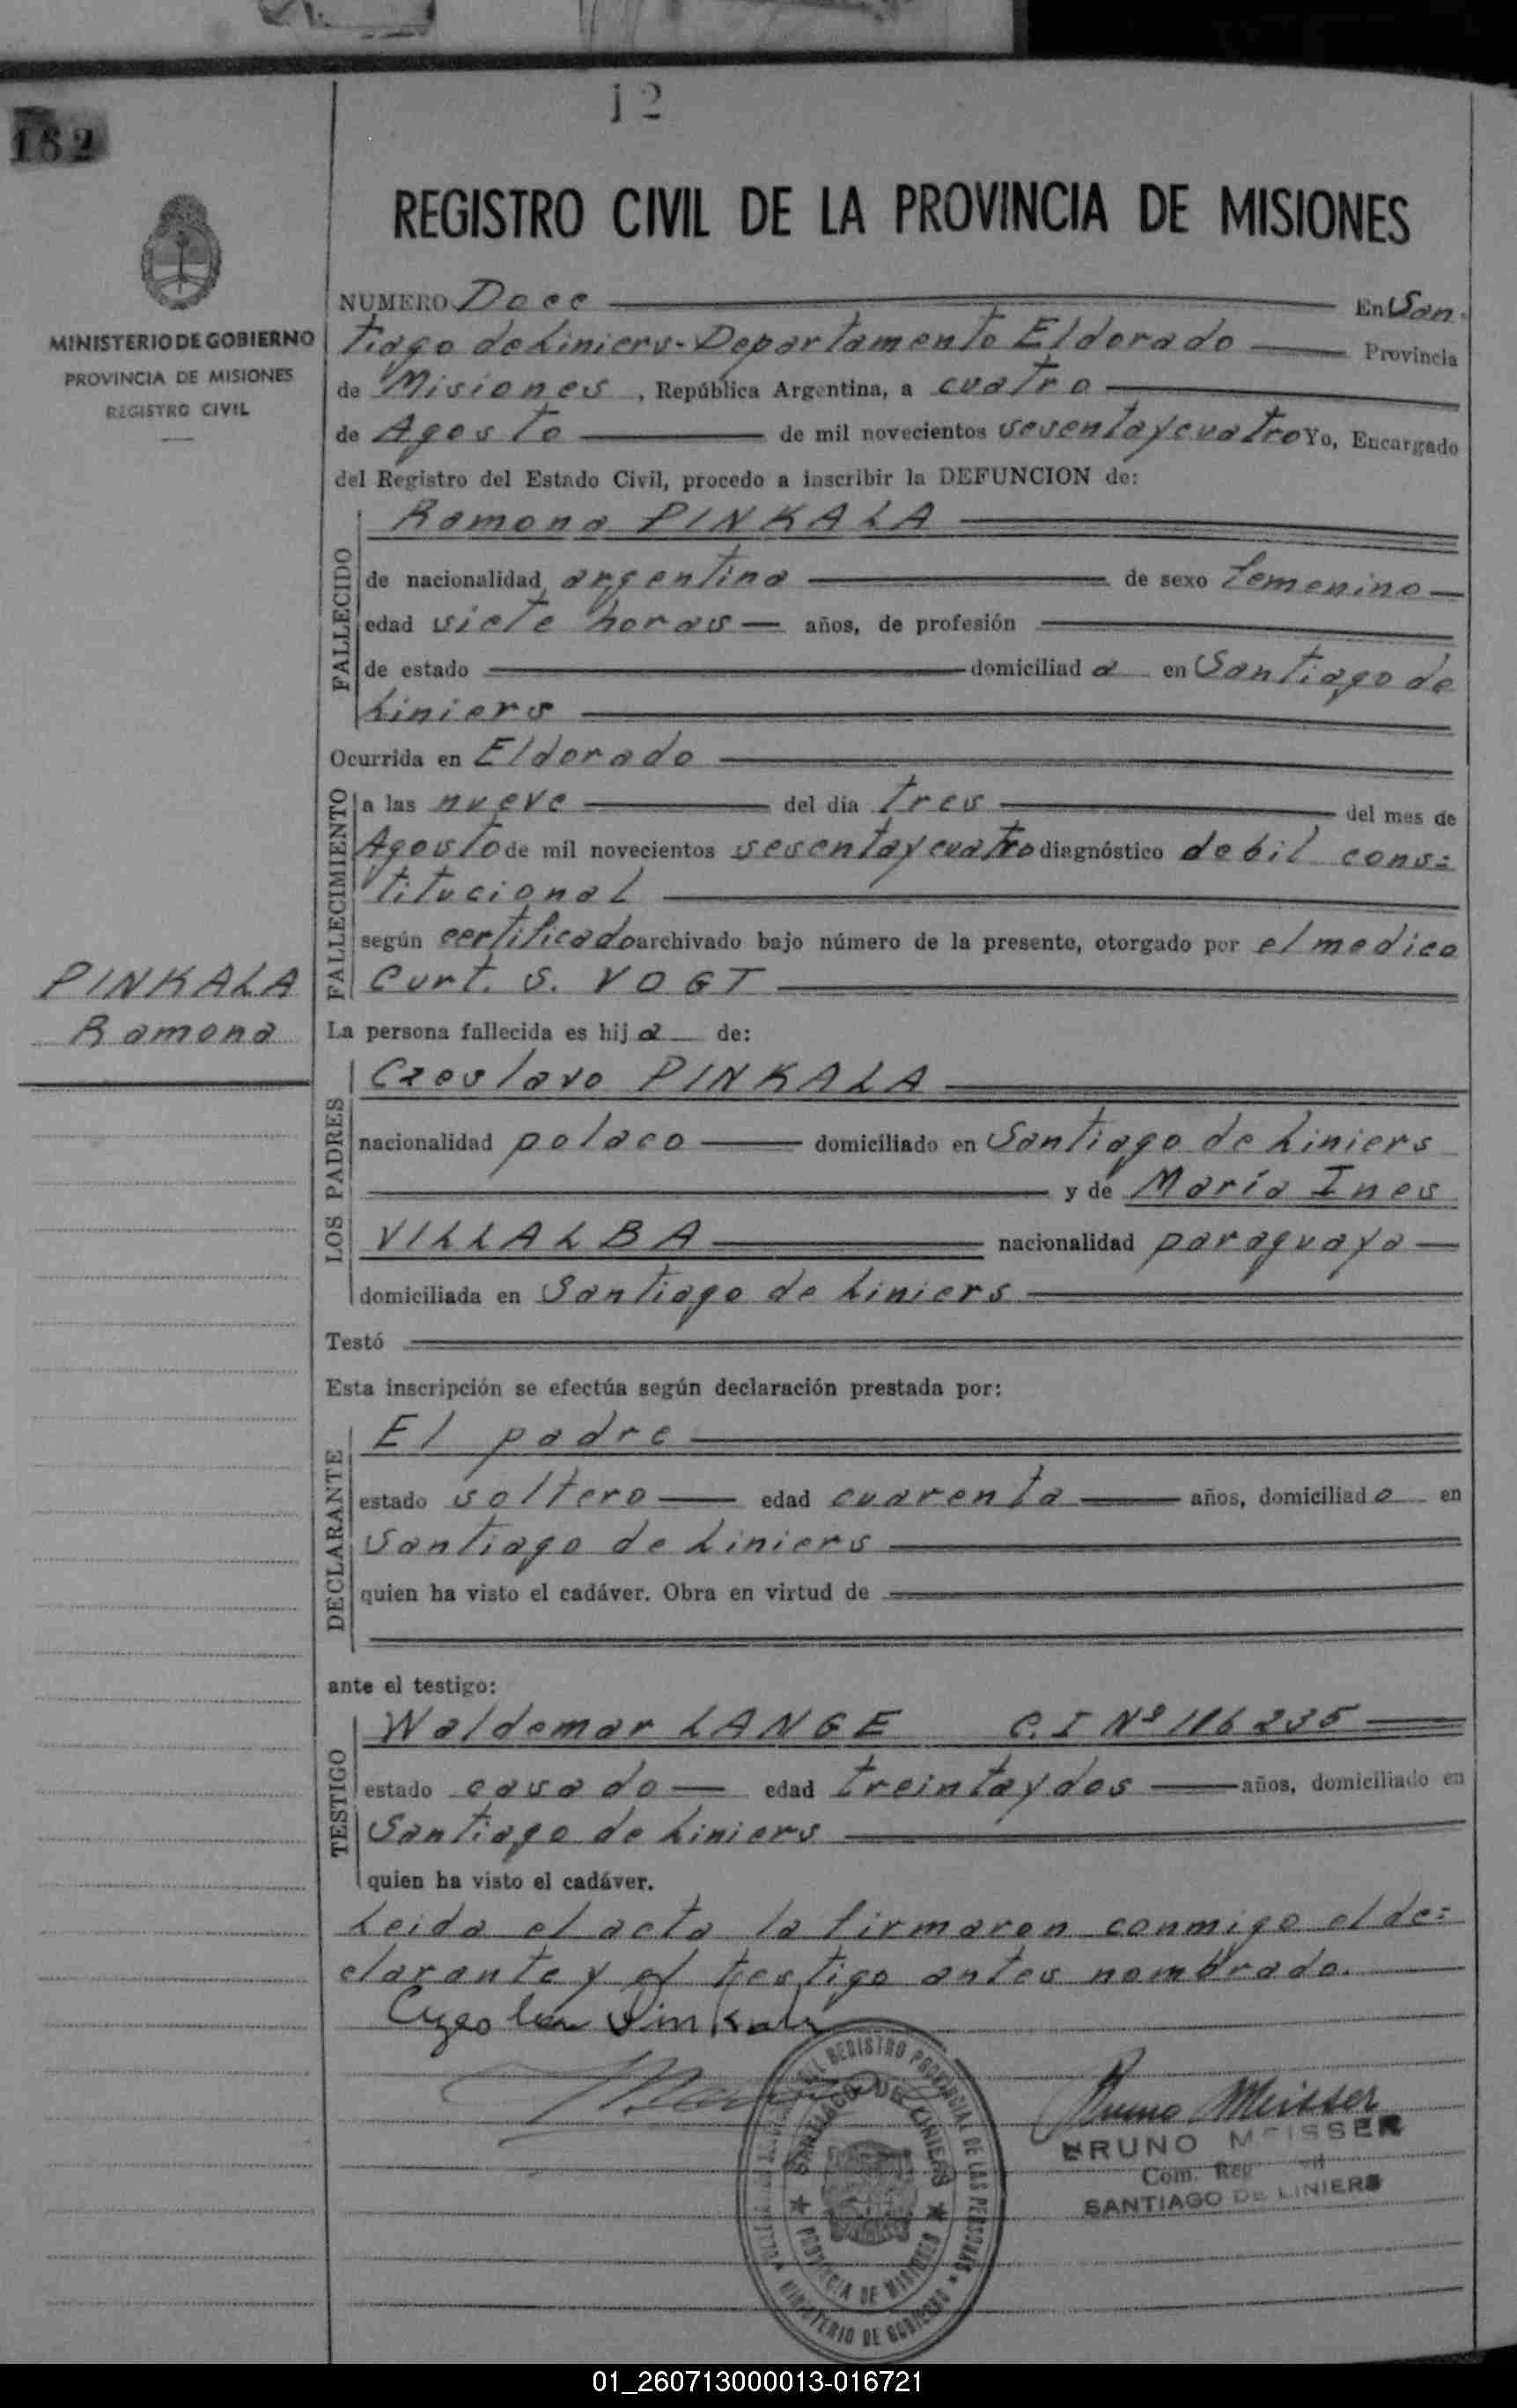 12
182
REGISTRO CIVIL DE LA PROVINCIA DE MISIONES
MINISTERIO DE GOBIERNO
PROVINCIA DE MISIONES
REGISTRO CIVIL
NUMERO Doce En San-
tiago de Liniers-Departamento Eldorado Provincia
de Misiones, República Argentina, a cuatro
de Agosto de mil novecientos sesentaycuatro Yo, Encargado
del Registro del Estado Civil, procedo a inscribir la DEFUNCION de:
FALLECIDO
Ramona PINKALA
de nacionalidad argentina de sexo femenino
edad siete horas años, de profesión
de estado domiciliad a en Santiago de
Liniers
Ocurrida en Eldorado
FALLECIMIENTO
a las nueve del día tres del mes de
Agosto de mil novecientos sesentaycuatro diagnóstico debil cons=
titucional
según certificado archivado bajo número de la presente, otorgado por el medico
Curt. S. VOGT
PINKALA
Ramona
La persona fallecida es hij a de:
LOS PADRES
Czeslavo PINKALA
nacionalidad polaco domiciliado en Santiago de Liniers
y de María Ines
VILLALBA nacionalidad paraguaya
domiciliada en Santiago de Liniers
Testó
Esta inscripción se efectúa según declaración prestada por:
DECLARANTE
El padre
estado soltero edad cuarenta años, domiciliad o en
Santiago de Liniers
quien ha visto el cadáver. Obra en virtud de
ante el testigo:
TESTIGO
Waldemar LANGE C.I Nº 116235
estado casado edad treintaydos años, domiciliado en
Santiago de Liniers
quien ha visto el cadáver.
Leida el acta la firmaron conmigo el de=
clarante y el testigo antes nombrado.
Pinkala
REGISTRO PROVINCIAL DE LAS PERSONAS
SANTIAGO DE LINIERS
PROVINCIA DE MISIONES
MINISTERIO DE GOBIERNO
Bruno Meisser
BRUNO MEISSER
Com. Reg
SANTIAGO DE LINIERS
01_260713000013-016721